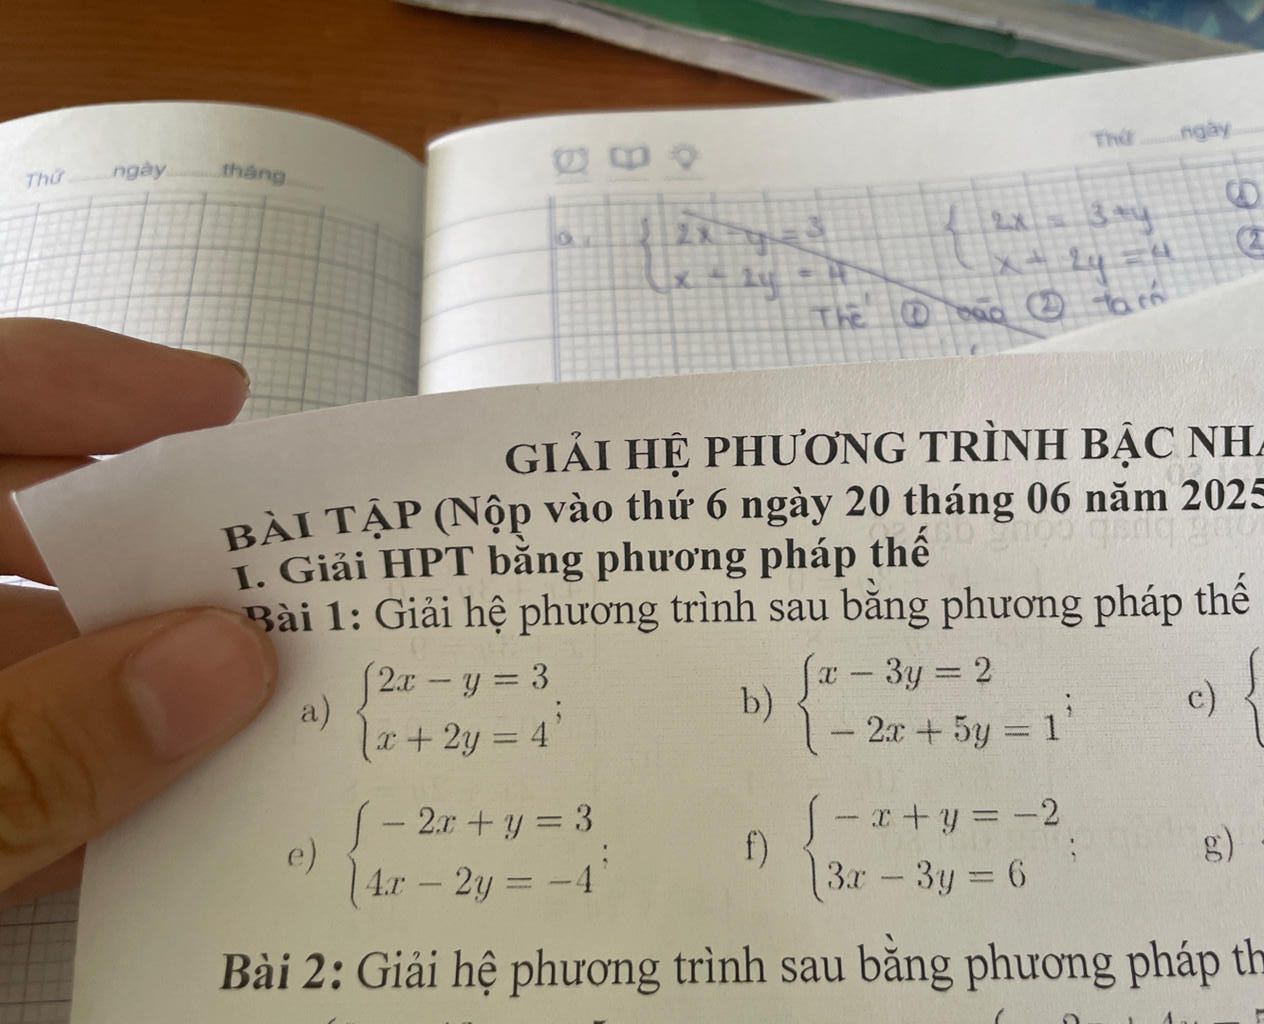 Thứ ngày tháng
Thứ ngày
a, { 2x - y = 3
x + 2y = 4
{ 2x = 3 + y ①
x + 2y = 4 ②
Thế ① vào ② ta có
GIẢI HỆ PHƯƠNG TRÌNH BẬC
BÀI TẬP (Nộp vào thứ 6 ngày 20 tháng 06 năm 2025
I. Giải HPT bằng phương pháp thế
Bài 1: Giải hệ phương trình sau bằng phương pháp thế
a) { 2x − y = 3
x + 2y = 4 ;
b) { x − 3y = 2
− 2x + 5y = 1 ;
c) {
e) { − 2x + y = 3
4x − 2y = −4 ;
f) { − x + y = −2
3x − 3y = 6 ;
g)
Bài 2: Giải hệ phương trình sau bằng phương pháp